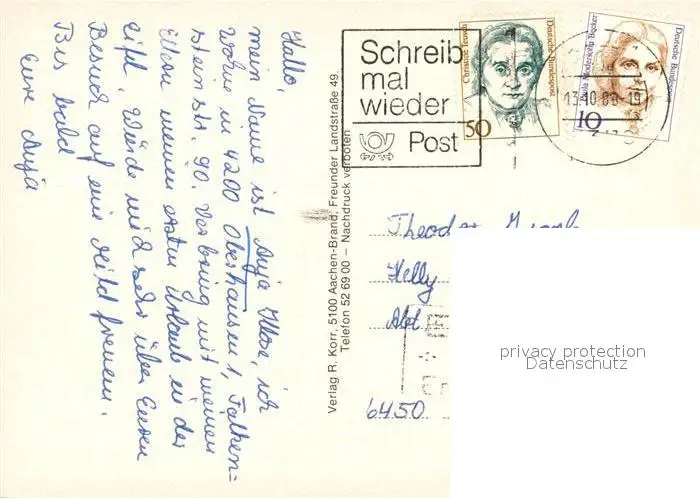 Hallo,
mein Name ist Anja, ich
wohne in 4200 Oberhausen 1, Falken=
steinstr. 90. Verbring mit meinen
Eltern meinen ersten Urlaub in der
Eifel. Würde mich sehr über Euren
Besuch auf ein freuen.
Bis bald
Eure Anja
Verlag R. Korr, 5100 Aachen-Brand, Freunder Landstraße 49
Telefon 52 69 00 – Nachdruck verboten
Schreib
mal
wieder
Post
Christine Teusch
Deutsche Bundespost
50
Paula Modersohn-Becker
Deutsche Bundespost
10
13.10.88-19
Theodor
Kelly
Abt
6450
privacy protection
Datenschutz